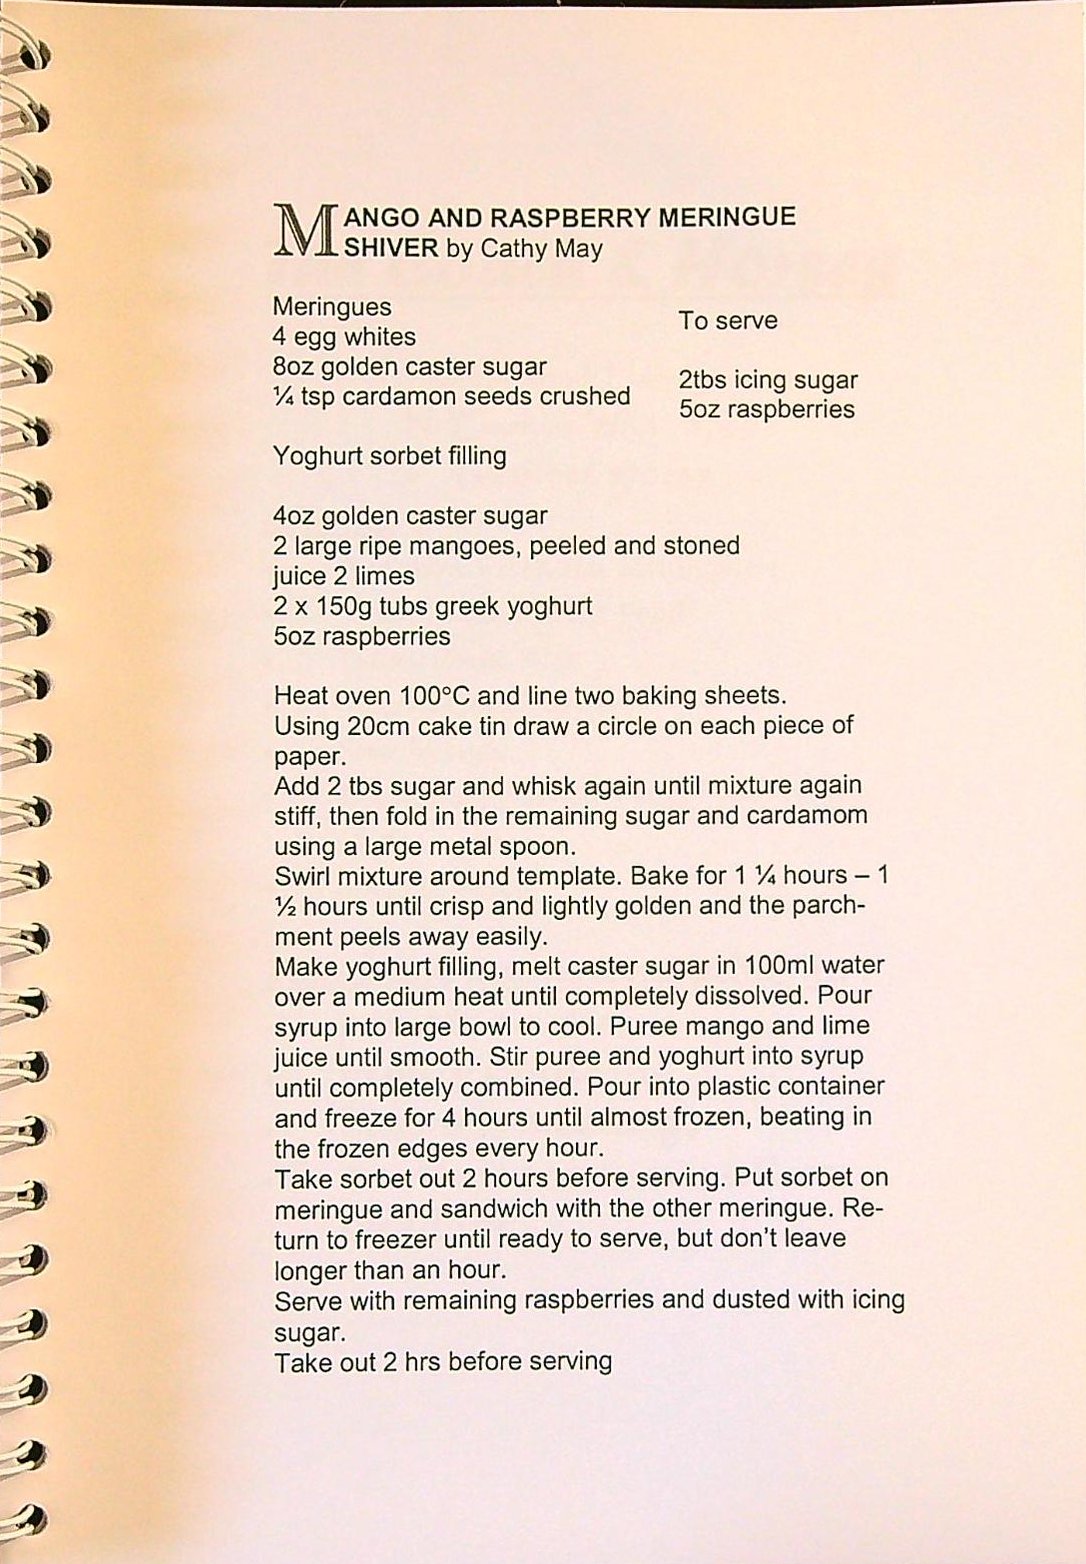 MANGO AND RASPBERRY MERINGUE
SHIVER by Cathy May
Meringues
4 egg whites
8oz golden caster sugar
¼ tsp cardamon seeds crushed
To serve
2tbs icing sugar
5oz raspberries
Yoghurt sorbet filling
4oz golden caster sugar
2 large ripe mangoes, peeled and stoned
juice 2 limes
2 x 150g tubs greek yoghurt
5oz raspberries
Heat oven 100°C and line two baking sheets.
Using 20cm cake tin draw a circle on each piece of
paper.
Add 2 tbs sugar and whisk again until mixture again
stiff, then fold in the remaining sugar and cardamom
using a large metal spoon.
Swirl mixture around template. Bake for 1 ¼ hours – 1
½ hours until crisp and lightly golden and the parch-
ment peels away easily.
Make yoghurt filling, melt caster sugar in 100ml water
over a medium heat until completely dissolved. Pour
syrup into large bowl to cool. Puree mango and lime
juice until smooth. Stir puree and yoghurt into syrup
until completely combined. Pour into plastic container
and freeze for 4 hours until almost frozen, beating in
the frozen edges every hour.
Take sorbet out 2 hours before serving. Put sorbet on
meringue and sandwich with the other meringue. Re-
turn to freezer until ready to serve, but don't leave
longer than an hour.
Serve with remaining raspberries and dusted with icing
sugar.
Take out 2 hrs before serving